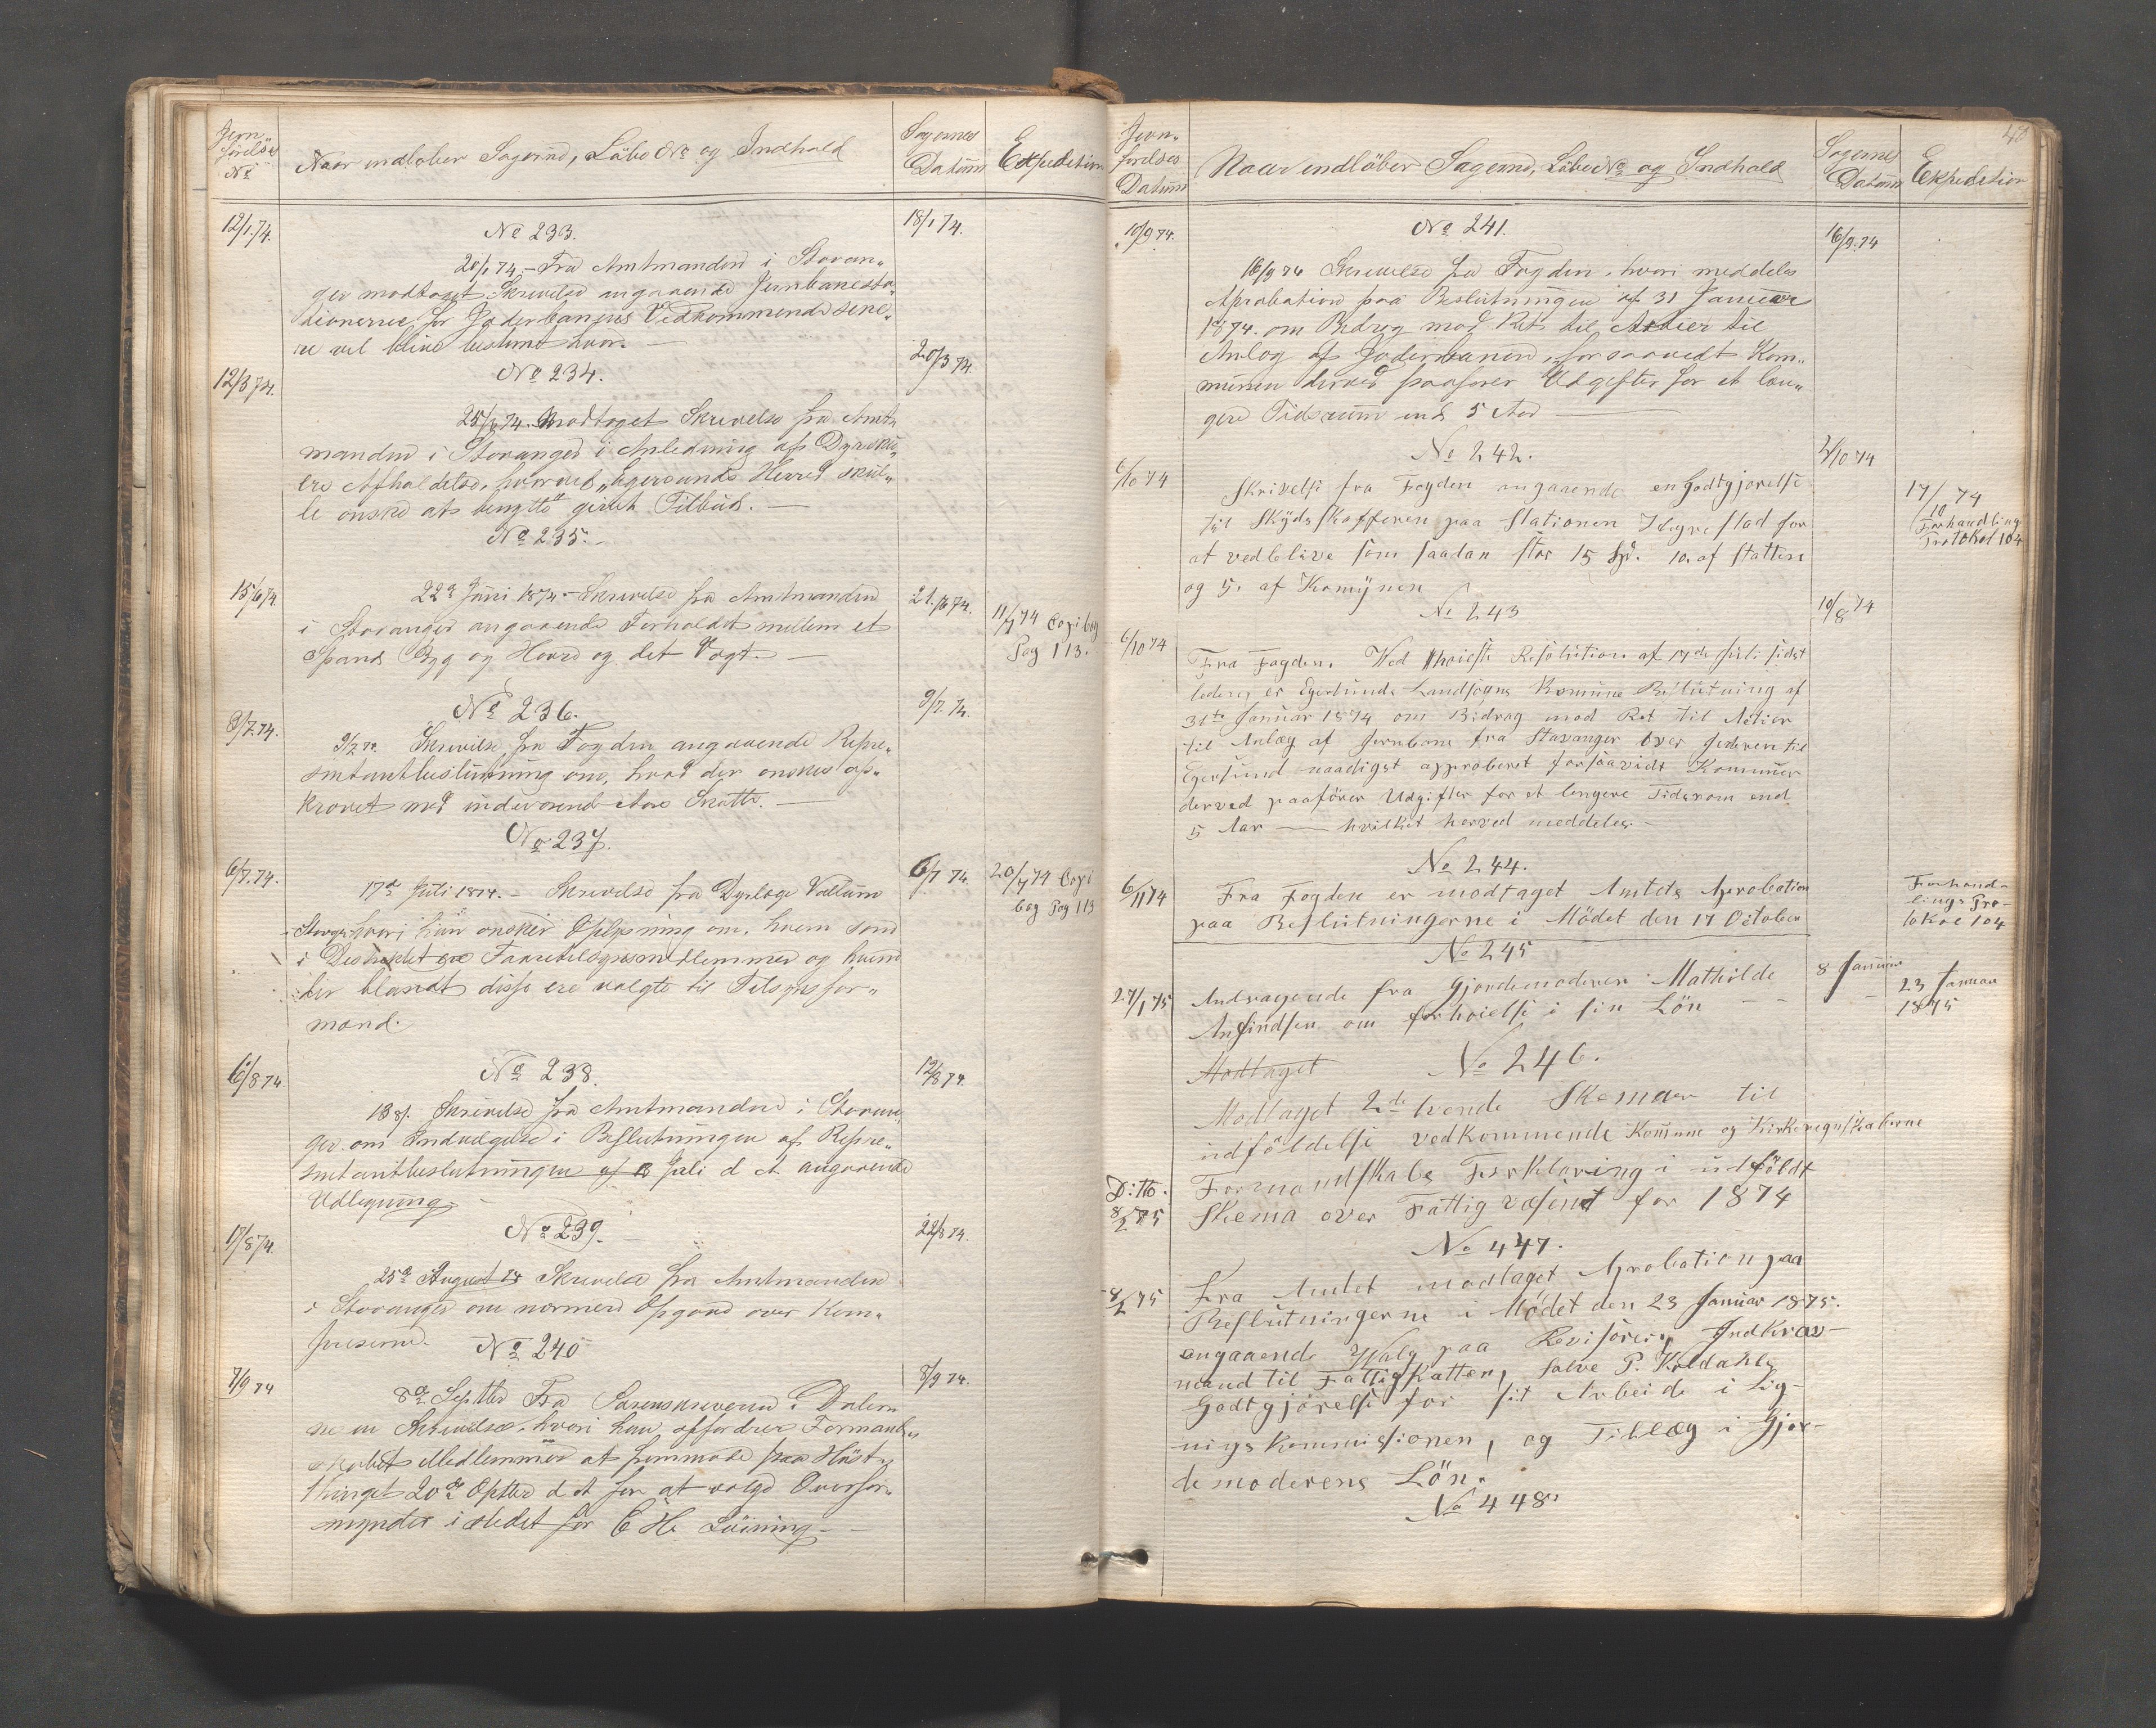 Jern-
förelses
No
Naar indlöber Sagerne, Löbe No og Indhold
Sagernes
Datum
Expedition
12/1.74.
No 233.
18/1 74.
20/1 74. - Fra Amtmanden i Stavan-
ger modtaget Skrivelse angaaende Jernbanesta-
tionerne for Jæderbanens Vedkommende sene-
re vil blive bestemt hvor. -
12/3 74.
No 234.
20/3 74.
25/3 74. Modtaget Skrivelse fra Amt-
manden i Stavanger i Anledning af Dyrsku-
ers Afholdelse, hvorved Egersunds Herred skul-
le ønske at benytte givet Tilbud. -
No 235. -
15/6 74.
22de Juni 1874. - Skrivelse fra Amtmanden
21./6 74.
11/7 74 Copi bog
Pag 113.
i Stavanger angaaende Forholdet mellem et
Spand Byg og Havre og det Vægt. -
No 236.
3/7 74.
9/7. 74.
9/7 74. Skrivelse fra Fogden angaaende Repre-
sentantbeslutning om, hvad der ønskes op-
krævet med indeværende Aars Skatte. -
No 237.
6/7. 74.
6/7 74.
20/7 74 Copi
bog Pag 113
17de Juli 1874. - Skrivelse fra Dyrlæge Vallum
Stavger hvori han ønsker Oplysning om, hvem som
i Distriktet ere Faaretilsynsmedlemmer og hvem
der blandt disse ere valgte til Tilsynsfor-
mand.
6/8 74
No 238.
12/8 74.
18 8/. Skrivelse fra Amtmanden i Stavan-
ger. om Indvilgelse i Beslutningen af Repre-
sentantbeslutningen af 13 Juli d A. angaaende
Udlegning. -
17/8 74.
No 239. -
22/8 74.
25de August 74 Skrivelse fra Amtmanden
i Stavanger om nærmere Opgave over Kom-
No 240
7/9 74
8/9 74.
8de Septbr Fra Sorenskriveren i Dalern
ne en Skrivelse, hvori han opfordrer Formand-
skabets Medlemmer at fremmøde paa Høst-
thinget 20de Septbr d A for at vælge Overfor-
mynder i stedet for E He Løining -
Jern-
förelses
Datum
Naar indlöber Sagerne, Löbe No og Indhold
Sagernes
Datum
Expedition
10/9 74.
No 241.
16/9. 74
16/9 74 Skrivelse fra Fogden, hvori meddeles
Aprobation paa Beslutningen af 31 Januar
1874. om Bidrag mod Ret til Actier til
Anlæg af Jæderbanen, forsaavidt Kom-
munen derved paafører Udgifter for et læn-
gere Tidsrum end 5 Aar -
6/10 74
No 242.
2/10 74
Skrivelse fra Fogden angaaende en Godtgjørelse
til Skydsskafferen paa Stationen Hegrestad for
17/10 74
Forhandling
Protokol 104
at vedblive som saadan stor 15 Spd. 10. af Statten
og 5. af Komünen
No 243
10/8 74
6/10 74
Fra Fogden. Ved Høieste Resolution af 17de Juli sidst
ledenes er Egersunds Landsogns Komune Beslutning af
31te Januar 1874 om Bidrag mod Ret til Actier
til Anlæg af Jernbane fra Stavanger over Jæderen til
Egersund naadigst approberet forsaavidt Kommunen
derved paaförer Udgifter for et længere Tidsrom end
5 Aar — hvilket herved meddeles. -
No 244.
6/11 74
Fra Fogden er modtaget Amtets Aprobation
Forhand-
lings Pro-
tokol 104
paa Beslutningerne i Mödet den 17 October
No 245
27/1 75
Andragende fra Gjordemoderen Mathilde
8 Januar
23 Januar
1875
Anfindsen om forhöielse i sin Lön
No 246.
Modtaget
Modtaget 2de hvende Skemaer til
udföldelse vedkommende Komune og Kirkeregnskaberne
Ditto.
Formandskabs Forklaring i udföldt
8/2 75
Skema over Fattigvæsenet for 1874
No 447.
8/2 75
Fra Amtet modtaget Aprobation paa
Beslutningerne i Mödet den 23 Januar 1875.
angaaende Valg paa Revisörer, Indkræv-
mand til Fattigskatten, Salve P. Koldahls
Godtgjörelse for sit Arbeide i Lig-
nings kommissionen, og Tillæg i Gjor-
demoderens Lön.
No 448.